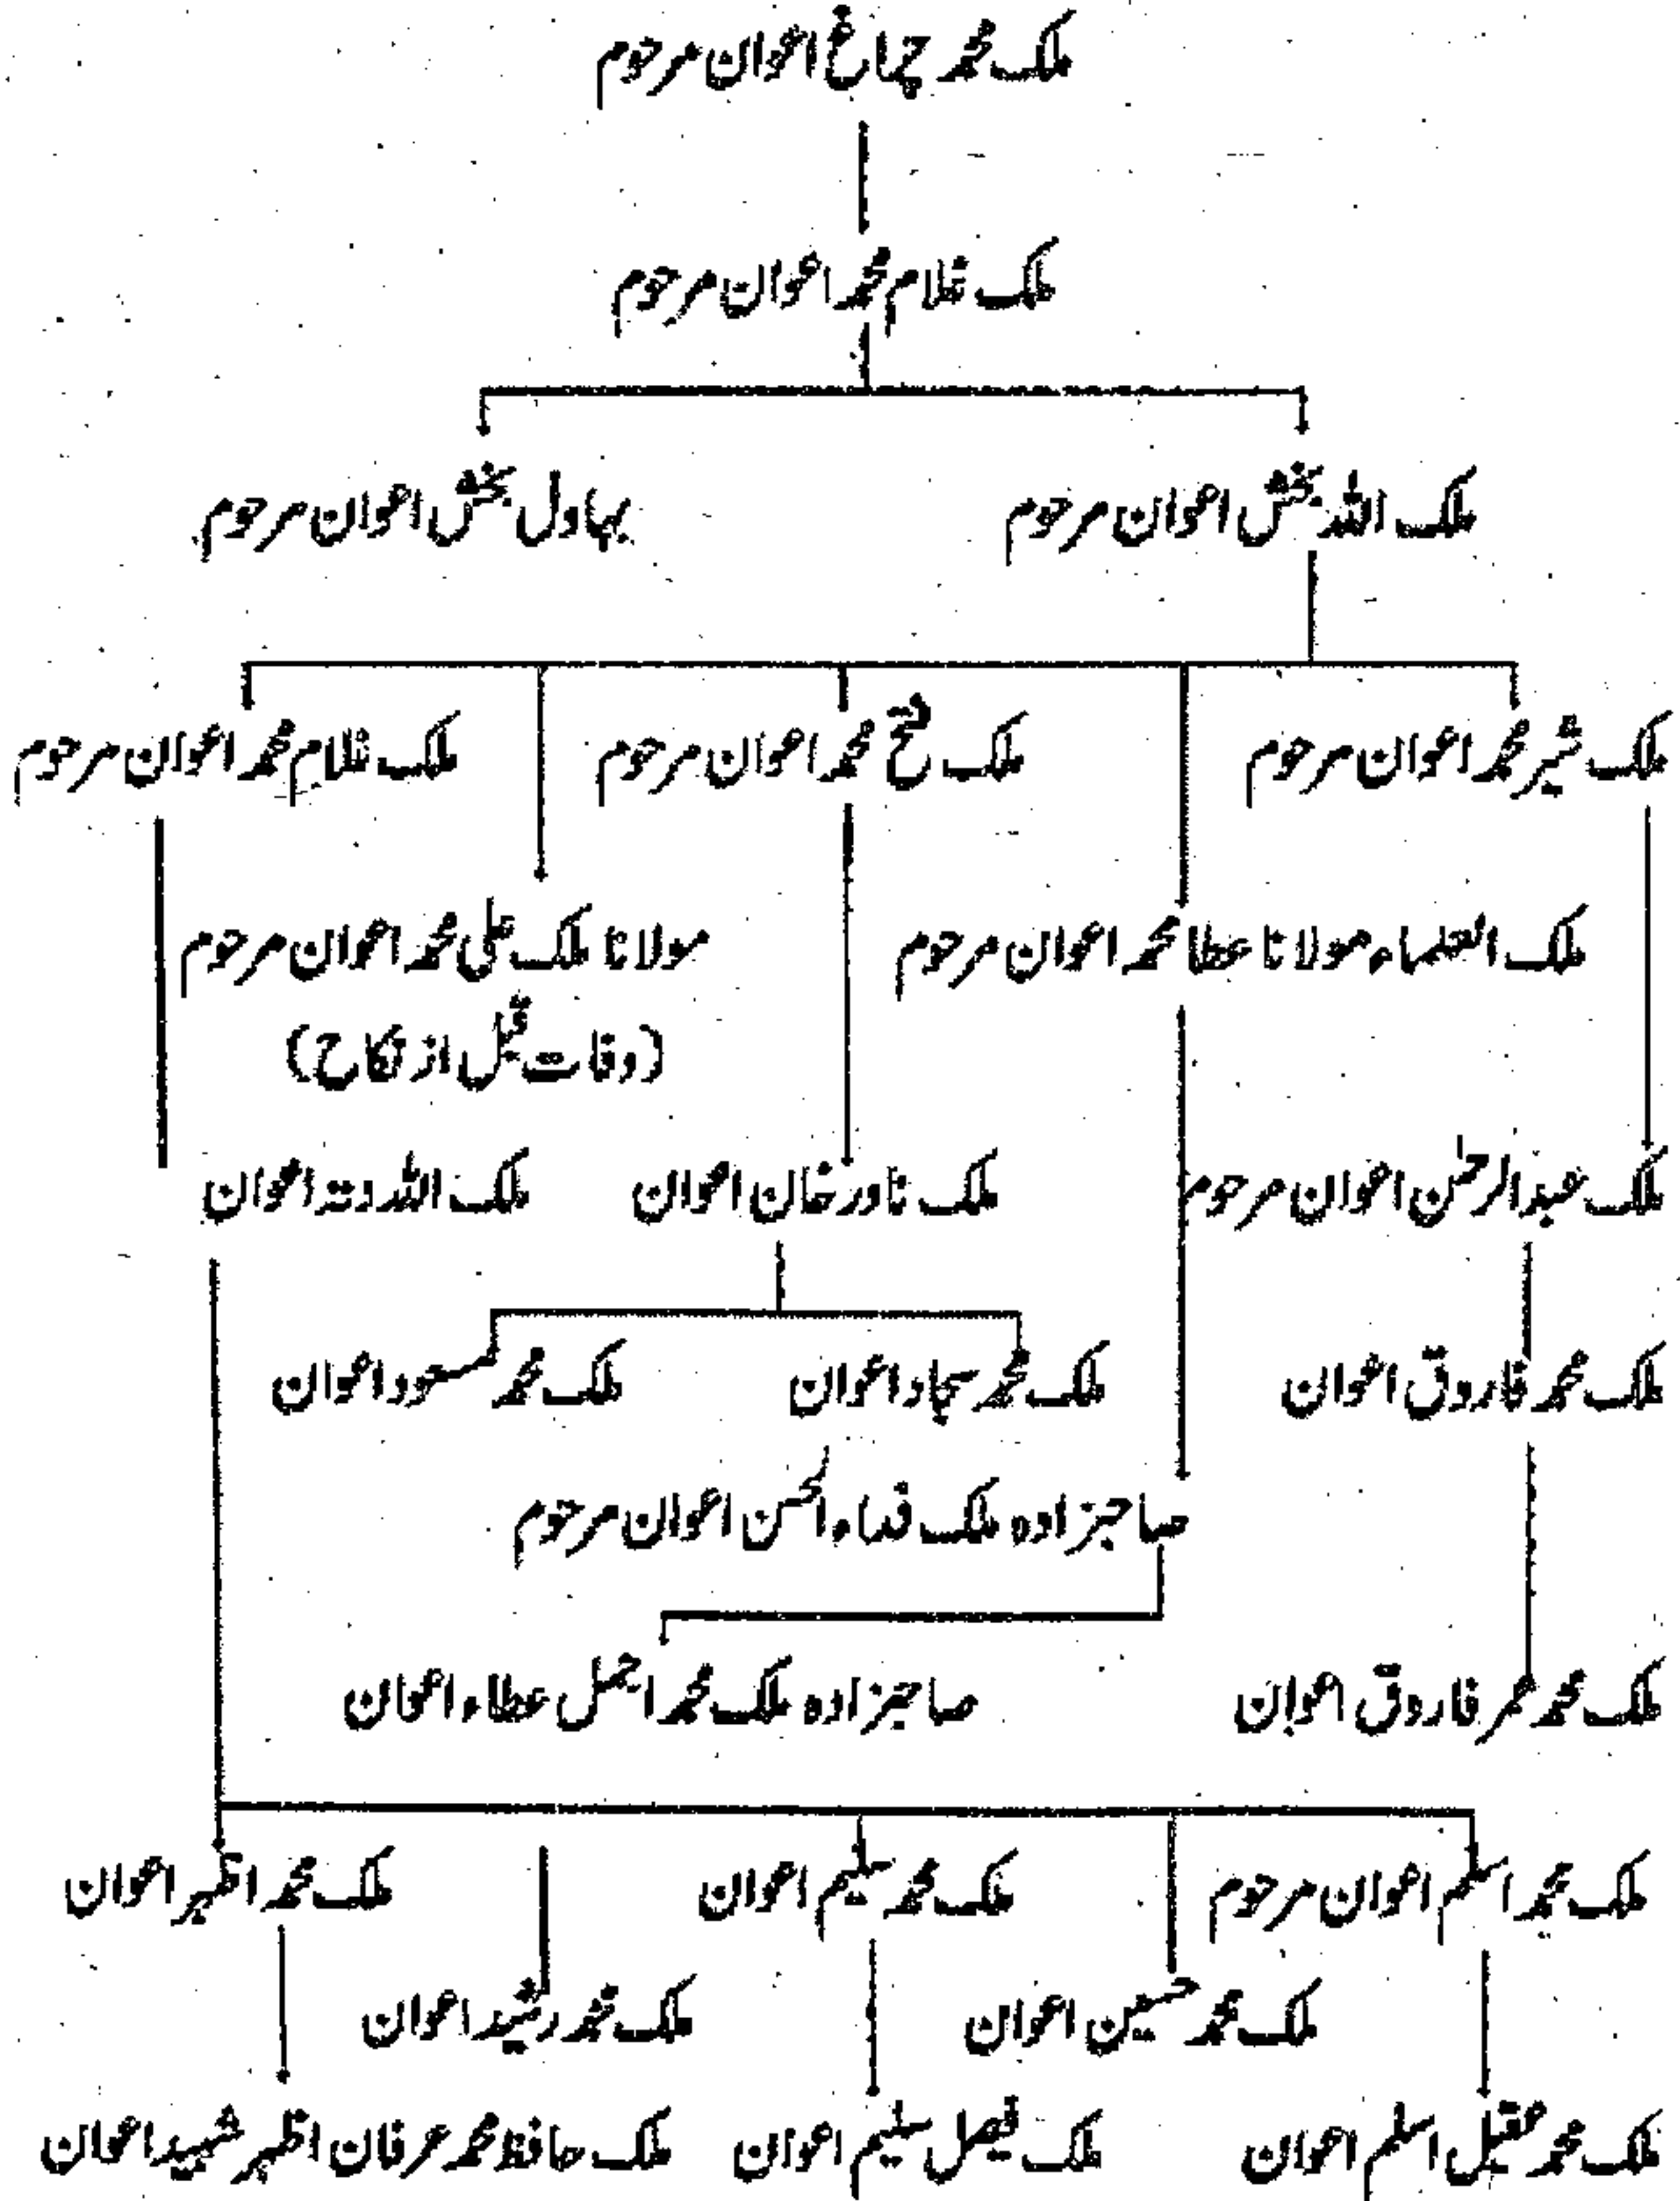 ملک محمد چراغ اعوان مرحوم
ملک غلام محمد اعوان مرحوم
ملک اللہ بخش اعوان مرحوم
بہاول بخش اعوان مرحوم
ملک شیر محمد اعوان مرحوم
ملک فتح محمد اعوان مرحوم
ملک غلام محمد اعوان مرحوم
ملک العلماء مولانا عطا محمد اعوان مرحوم
مولانا ملک علی محمد اعوان مرحوم
(وفات قبل از نکاح)
ملک عبدالرحمٰن اعوان مرحوم
ملک نادر خان اعوان
ملک اللہ دتہ اعوان
ملک محمد فاروق اعوان
ملک محمد سجاد اعوان
ملک محمد مسعود اعوان
صاحبزادہ ملک فداء الحسن اعوان مرحوم
ملک محمد عمر فاروق اعوان
صاحبزادہ ملک محمد اجمل عطاء اعوان
ملک محمد اسلم اعوان مرحوم
ملک محمد سلیم اعوان
ملک محمد اظہر اعوان
ملک محمد حسین اعوان
ملک محمد رشید اعوان
ملک محمد عقیل اسلم اعوان
ملک فیصل سلیم اعوان
ملک حافظ محمد عرفان اظہر شہید اعوان